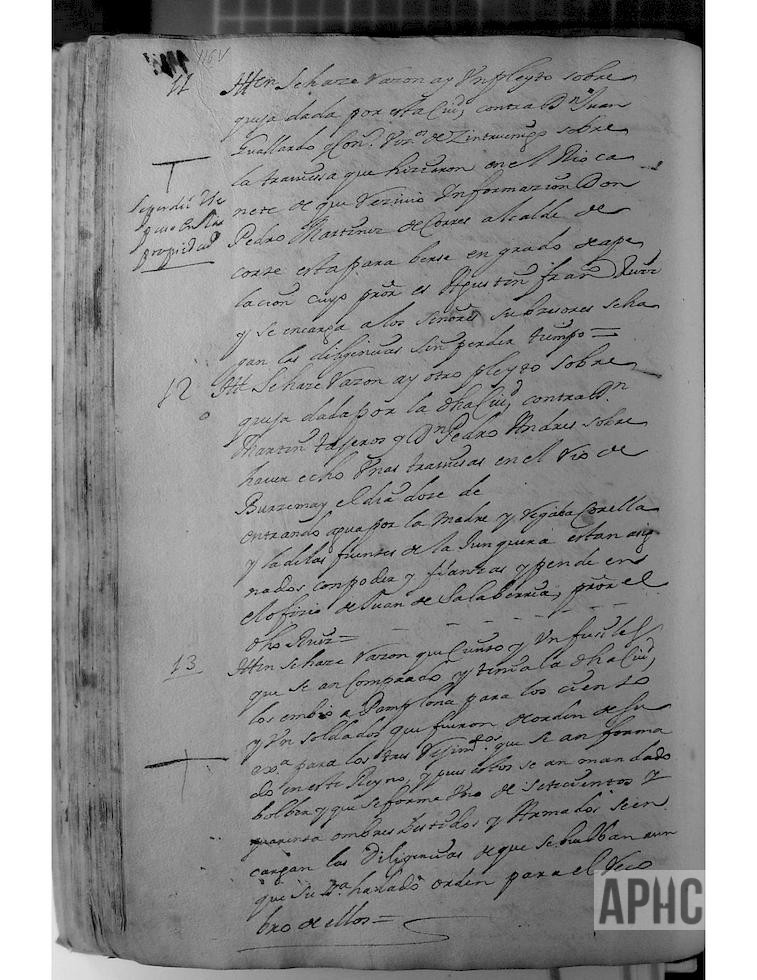 116v
11 Itten Se haze Razon ay Un pleyto sobre
queja dada por esta Ciud, contra Dn Juan
Guallardo y Conn. Vezos de Zintruenigo sobre
la trauiessa que hizieron en el Rio ca
nete de que Reziuio Informazion Don
Pedro Martinez de Corres alcalde de
corte esta para berse en grado de ape
lacion cuyo pror es Agustin franco Ruiz
y se encarga a los señores subzesores se ha
gan las diligenzias sin perder tiempo =
se perdio
pleito en la
propiedad
12 Itt Se haze Razon ay otro pleyto sobre
queja dada por la dha Ciud contra Dn
Martin tajeros y Dn Pedro Andres sobre
hauer echo Unas trauiesas en el rio de
el dia doze de
entrando agua por la Madre y Regata Corella
y la de las fuentes de la Junquera estan asig
nados con poder y fianzas y pende en
el ofizio de Juan de Salaberria, pror el
dho Ruiz =
13 Itten se haze Razon que Ciento y Un fusiles
que se an Comprado y tenia la dha Ciud,
los embio a Pamplona para los ciento
y Un soldados que fueron de orden de su
exa para los tres Rejimtos que se an forma
do en este Reyno, y pues estos se an mandado
bolber y que se forme Uno de setecientos y
quarenta ombres bestidos y Armados se en
cargan las Diligenzias de que se buelban aun
que Su Exa ha dado orden para el Reco
bro de ellos =
APHC